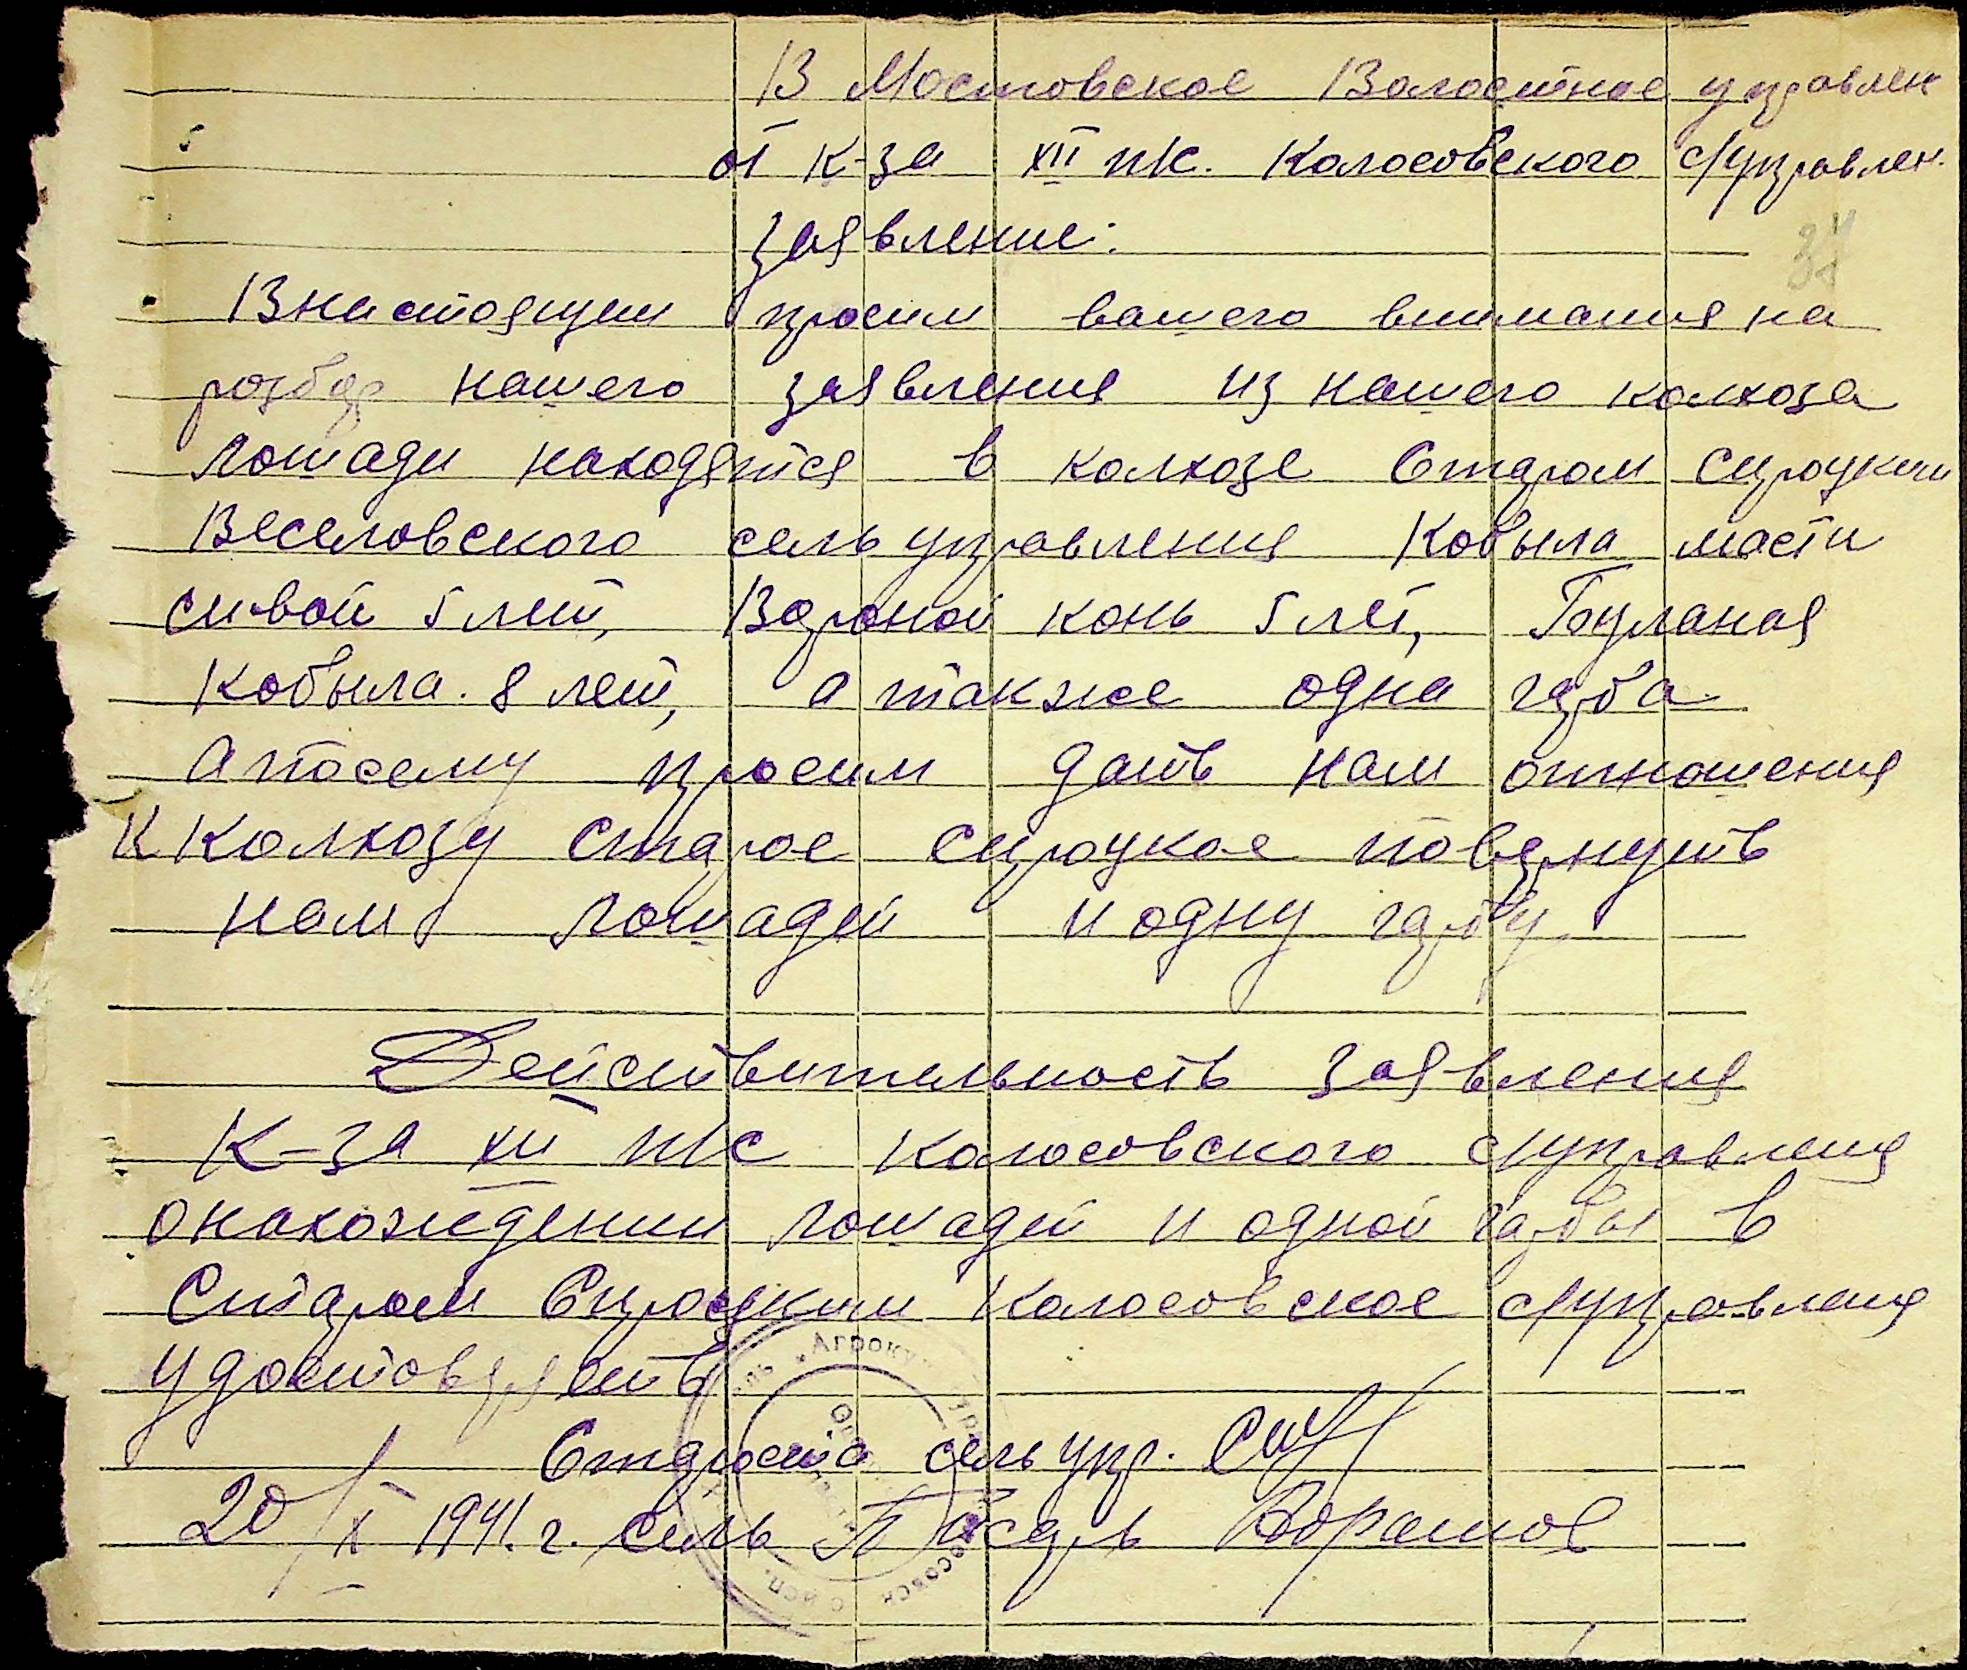 В Мостовское Волостное управлен
от к-за XII пк. Колосовского с/управлен.
37
заявление:
Внастоящем просим вашего внимания на
розбор нашего заявления из нашего колхоза
лошади находятся в колхозе Старом Сироцким
Веселовского сельуправления Кобыла масти
сивой 5 лет, Вороной конь 5 лет, Буланая
кобыла. 8 лет, а также одна гарба.
апосему просим дать нам отношения
к колхозу старое сироцкое повернуть
нам лошадей и одну гарбу
Действительность заявления
К-за XII п/с Колосовского с/управления
онахождении лошадей и одной гарбы в
Старом Сироцким Колосовское с/управления
удостоверяеть
Староста сельупр.
20/X 1941. г. сель Писарь